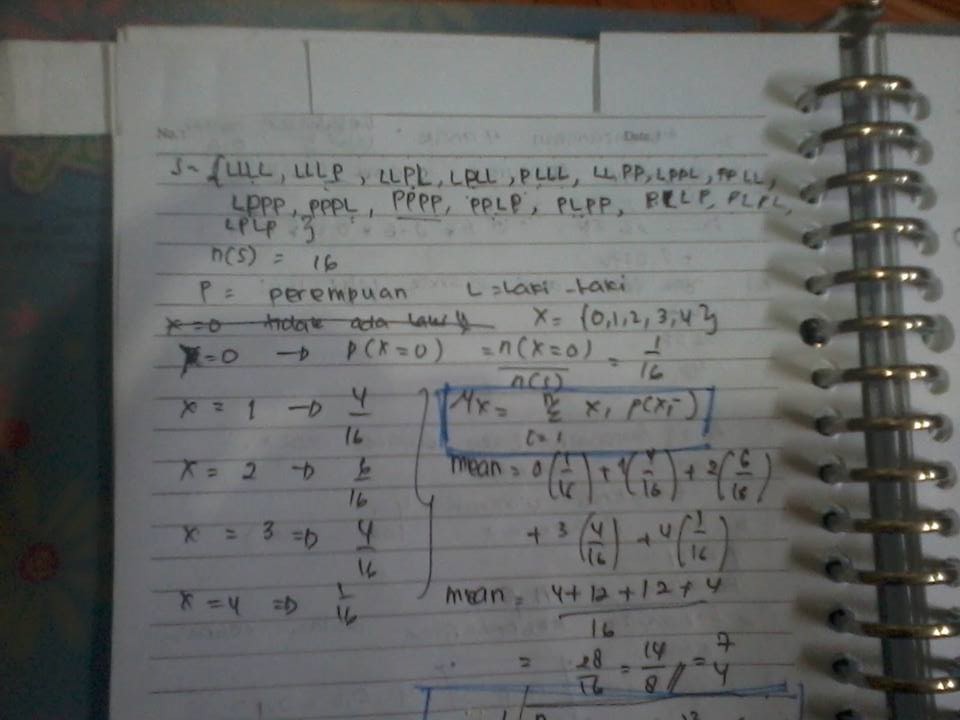 No.: Date.:
S = {LLLL, LLLP, LLPL, LPLL, PLLL, LLPP, LPPL, PPLL,
LPPP, PPPL, PPPP, PPLP, PLPP, PLLP, PLPL,
LPLP }
n(S) = 16
P = perempuan L = Laki - Laki
x = 0 tidak ada X = {0,1,2,3,4}
x = 0 → P(X=0) = n(X=0)/n(S) = 1/16
x = 1 → 4/16
μx = n Σ i=1 x, P(xi)
x = 2 → 6/16
mean = 0(1/16) + 1(4/16) + 2(6/16)
x = 3 ⇒ 4/16
+ 3(4/16) + 4(1/16)
x = 4 ⇒ 1/16
mean = 4+12+12+4/16
= 28/16 = 14/8 // = 7/4